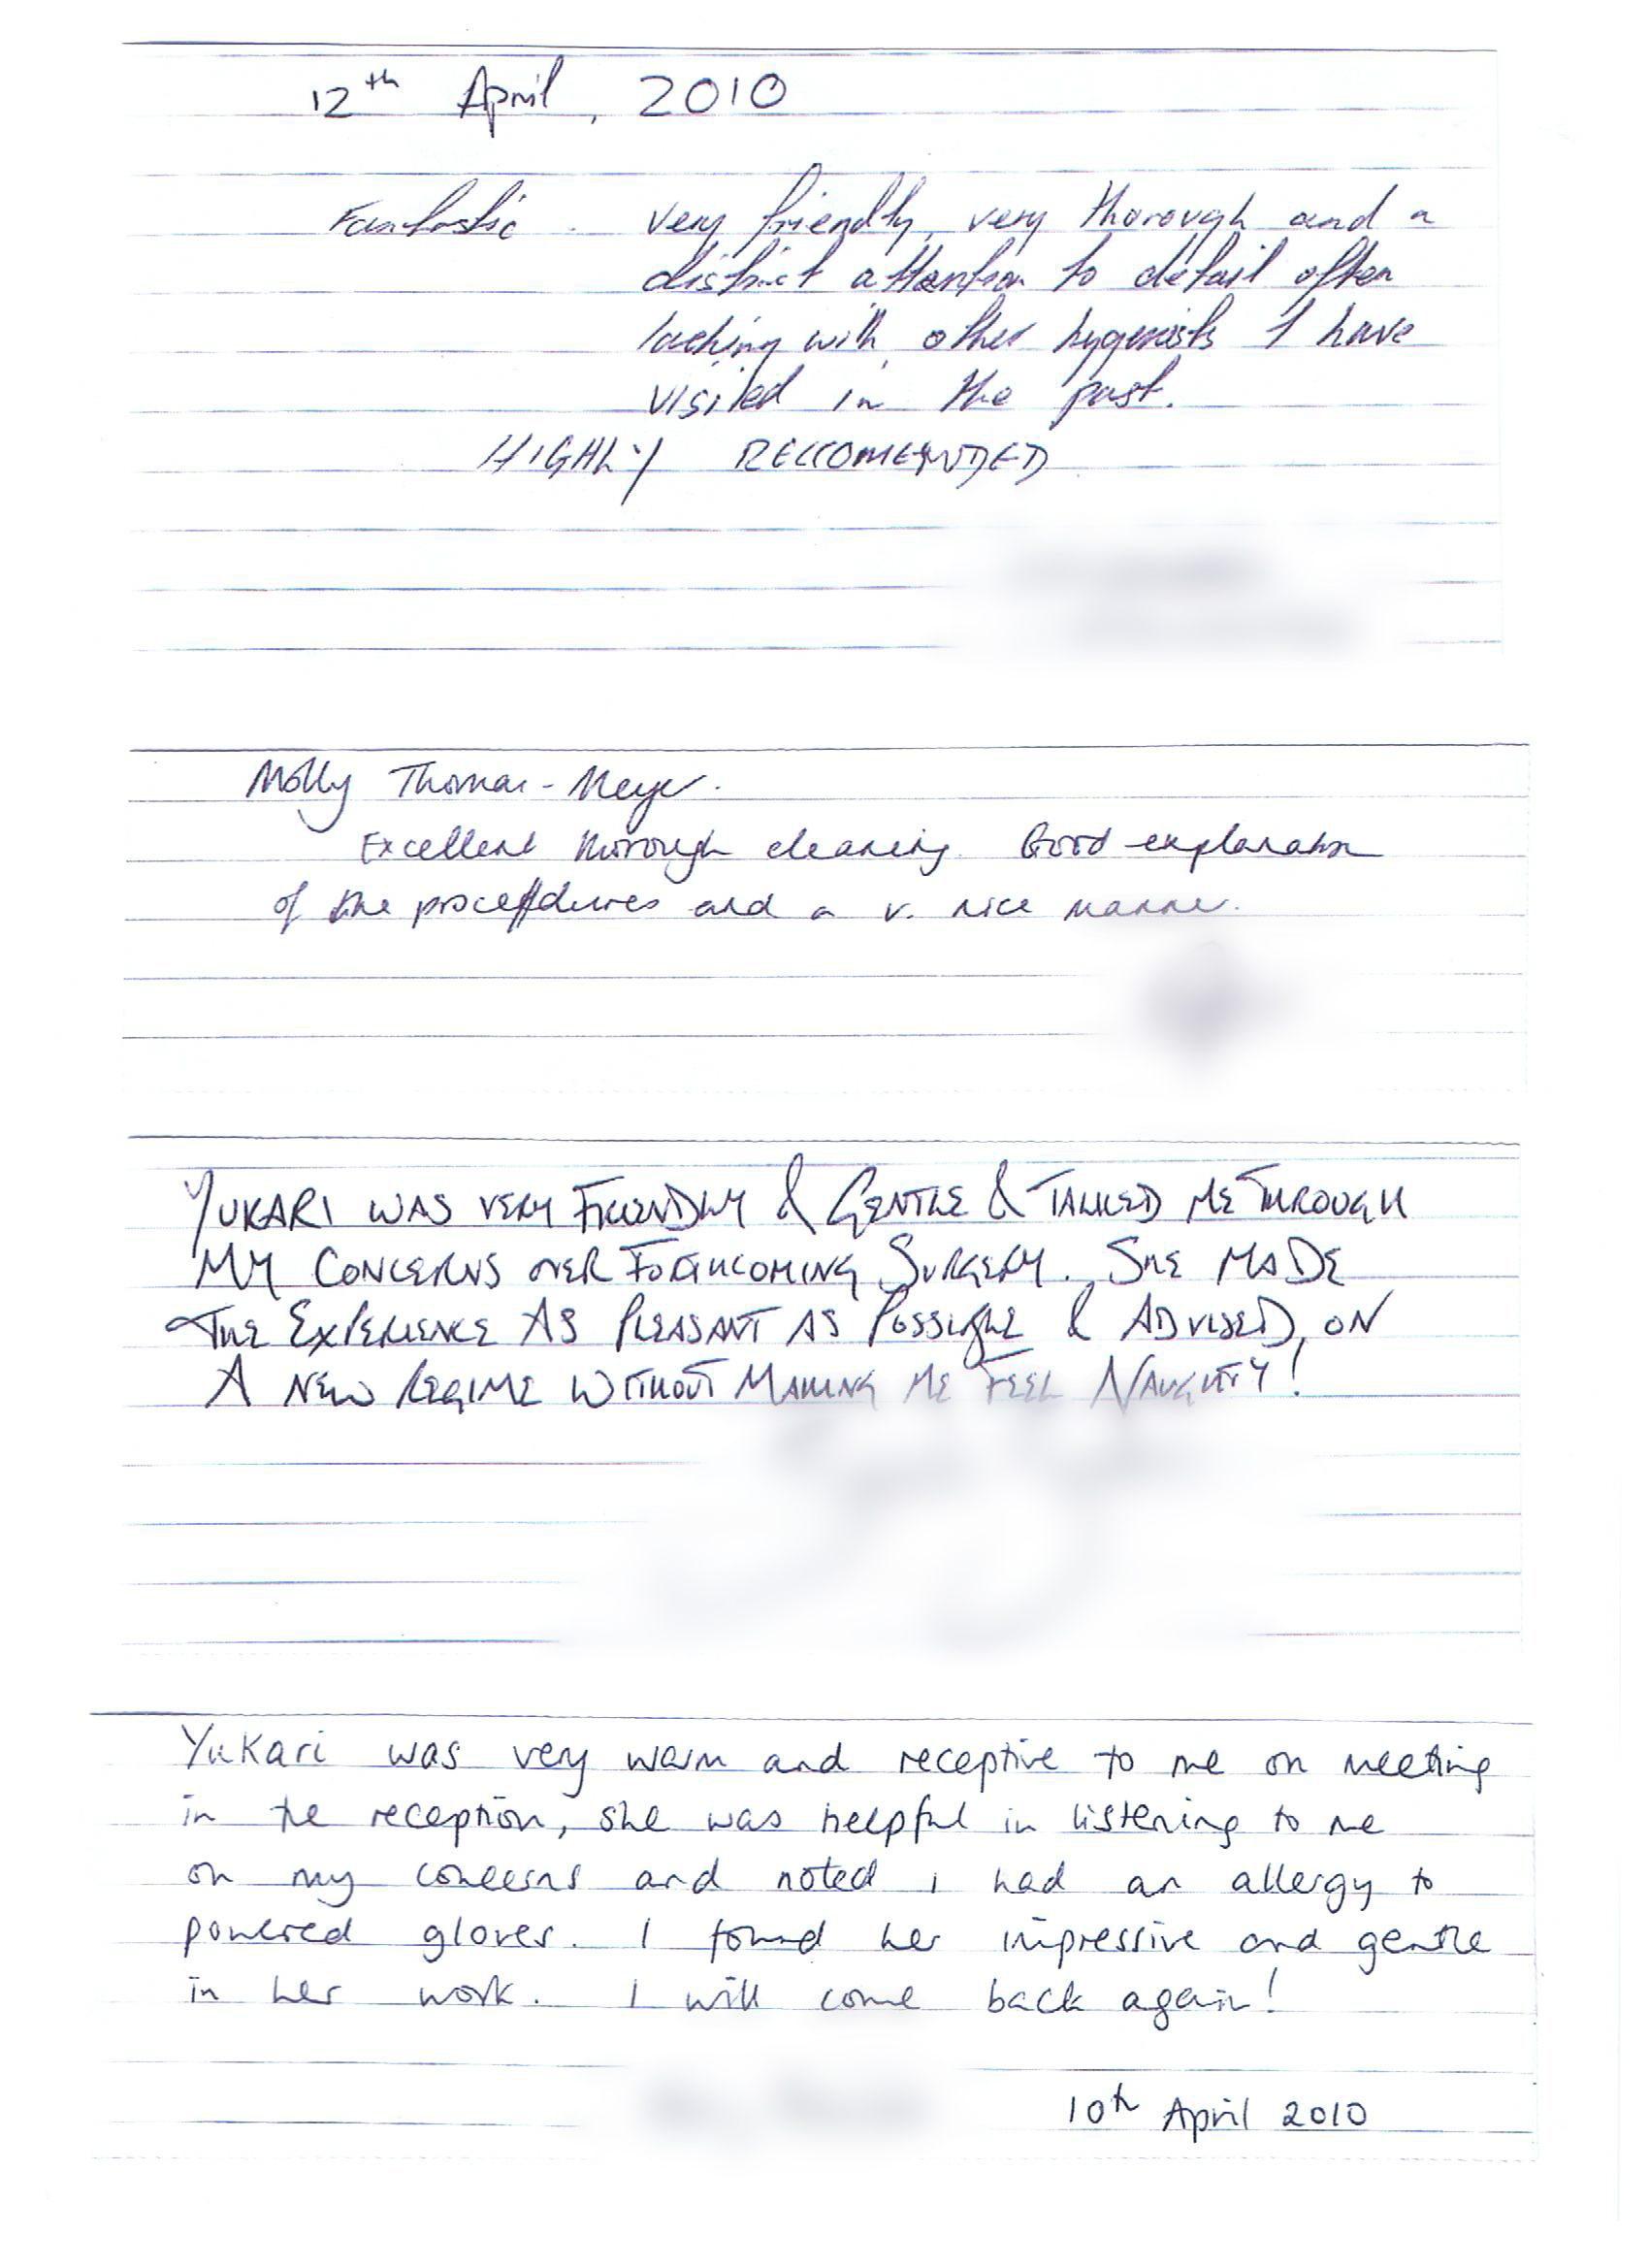 12th April, 2010
Fantastic. Very friendly, very thorough and a
distinct attention to detail often
lacking with other hygenists I have
visited in the past.
HIGHLY RECCOMENDED
Molly Thomas-Meyer.
Excellent thorough cleaning. Good explanation
of the procedures and a v. nice manner.
YUKARI WAS VERY FRIENDLY & GENTLE & TALKED ME THROUGH
MY CONCERNS OVER FORTHCOMING SURGERY. SHE MADE
THE EXPERIENCE AS PLEASANT AS POSSIBLE & ADVISED, ON
A NEW REGIME WITHOUT MAKING ME FEEL NAUGHTY!
Yukari was very warm and receptive to me on meeting
in the reception, she was helpful in listening to me
on my concerns and noted i had an allergy to
powered gloves. I found her impressive and gentle
in her work. I will come back again!
10th April 2010